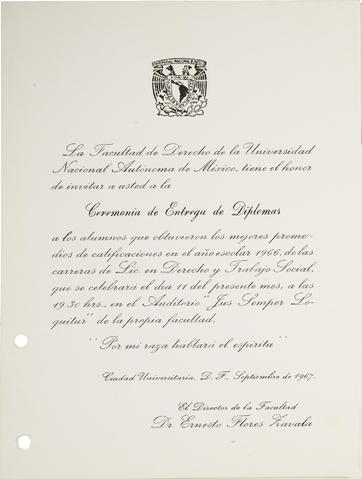 La Facultad de Derecho de la Universidad
Nacional Autonoma de México, tiene el honor
de invitar a usted a la
Ceremonia de Entrega de Diplomas
a los alumnos que obtuvieron los mejores prome-
dios de calificaciones en el año escolar 1966, de las
carreras de Lic. en Derecho y Trabajo Social,
que se celebrará el día 11 del presente mes, a las
19.30 hrs., en el Auditorio "Jus Semper Lo-
quitur" de la propia facultad.
"Por mi raza hablará el espíritu"
Ciudad Universitaria, D. F., Septiembre de 1967.
El Director de la Facultad
Dr. Ernesto Flores Zavala